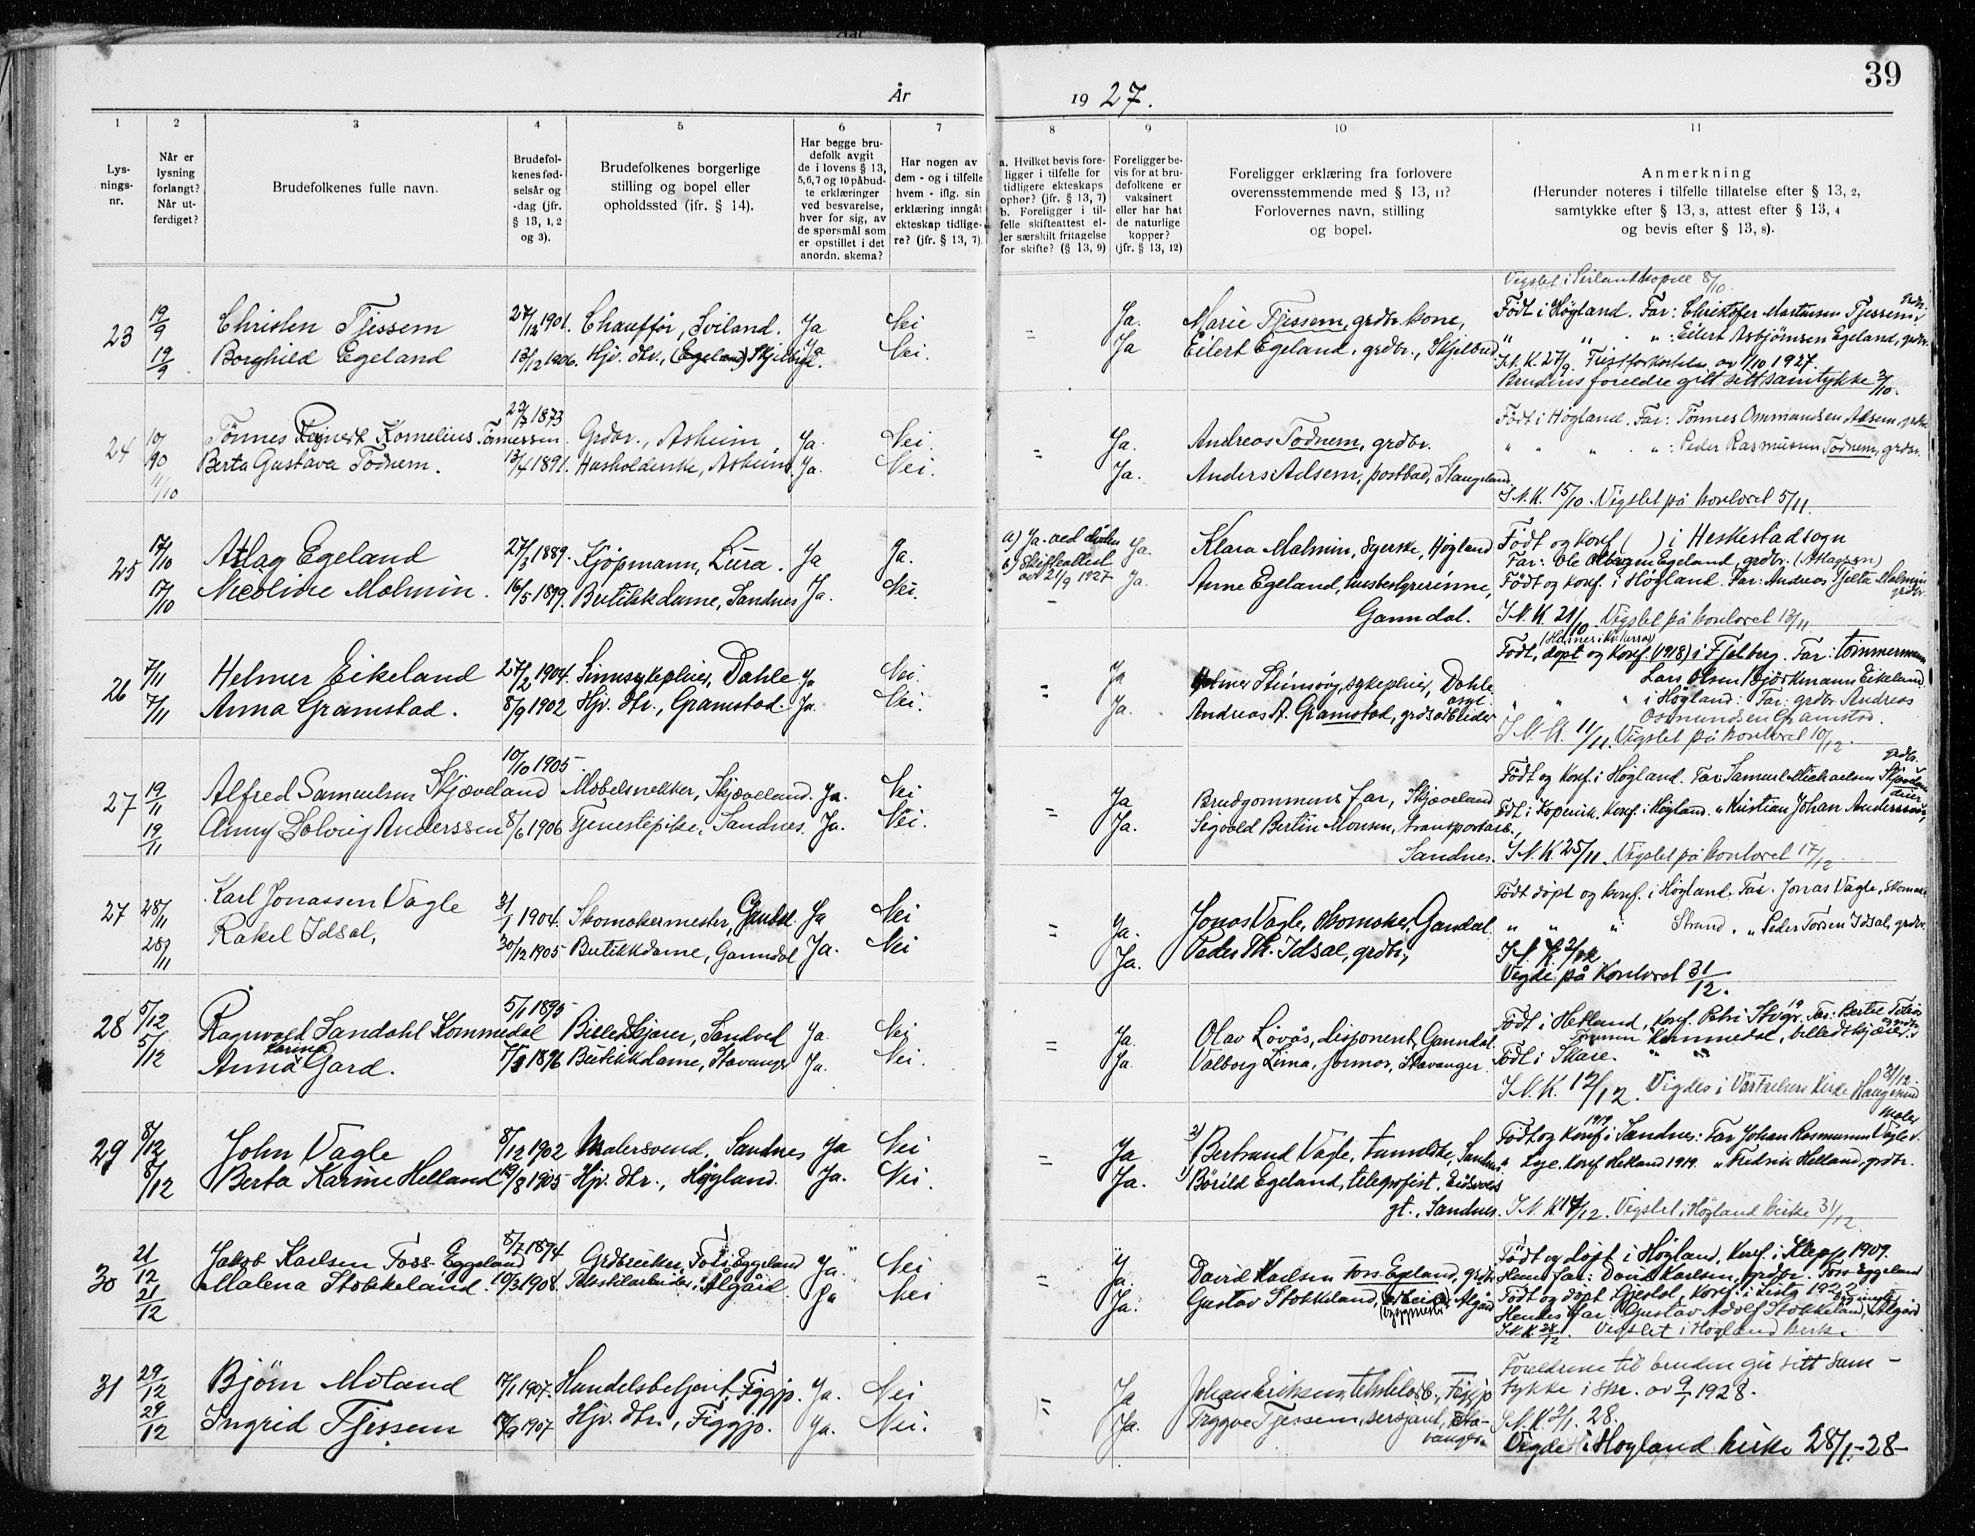 39
År 1927.
1 2 3 4 5 6 7 8 9 10 11
Lysnings-nr.
Når er lysning forlangt? Når utferdiget?
Brudefolkenes fulle navn.
Brudefolkenes fødselsår og -dag (jfr. § 13, 1, 2 og 3).
Brudefolkenes borgerlige stilling og bopel eller opholdssted (jfr. § 14).
Har begge brudefolk avgit de i lovens § 13, 5, 6, 7 og 10 påbudte erklæringer ved besvarelse, hver for sig, av de spørsmål som er opstillet i det anordn. skema?
Har nogen av dem - og i tilfelle hvem - iflg. sin erklæring inngåt ekteskap tidligere? (jfr. § 13, 7)
a. Hvilket bevis foreligger i tilfelle for tidligere ekteskaps ophør? (jfr. § 13, 7) b. Foreligger i tilfelle skifteattest eller særskilt fritagelse for skifte? (§ 13, 9)
Foreligger bevis for at brudefolkene er vaksinert eller har hat de naturlige kopper? (jfr. § 13, 12)
Foreligger erklæring fra forlovere overensstemmende med § 13, 11? Forlovernes navn, stilling og bopel.
Anmerkning (Herunder noteres i tilfelle tillatelse efter § 13, 2, samtykke efter § 13, 3, attest efter § 13, 4 og bevis efter § 13, 8).
Vigslet i 8/10.
23 19/9 Christen Tjessem 27/12 1901. Chauffør, Sviland. Ja Nei - Ja. Marie Tjessem, grdbr. kone, Født i Høgland. Far: Christofer Martinsen Tjessem, grdbr.
19/9 Borghild Egeland 13/12 1906. Hjv. dtr., (Egeland) Skjelbred. Ja Nei. Ja Eilert Egeland, grdbr., Skjelbred " " . " : Eilert Asbjørnsen Egeland, grdbr.
I N. K. 27/9. av 1/10 1927.
Brudens foreldre gitt sitt samtykke 3/10.
24 10/10 Tønnes Kornelius Tønnessen 27/7 1873 Grdbr., Asheim Ja. Nei. = Ja. Andreas Todnem, grdbr. Født i Høgland. Far: Tønnes Ommundsen Adsem, grdbr.
11/10 Berta Gustava Todnem. 13/4 1891. Husholderske, Asheim Ja. Nei. Ja. Anders Adsem, postbud, Stangeland " " " . " : Peder Rasmussen Todnem, grdbr.
I. N. K. 15/10. Vigslet på kontoret 5/11.
25 17/10 Atlag Egeland 27/3 1889. Kjøpmann, Lura. Ja Ja. a) Ja. ved døden Ja. Klara Malmin, syerske, Høgland Født og konf. ( ) i Heskestad sogn
b) Skifteattest av 21/9 1927 Far: Ole Egeland, grdbr. (Atlagsen)
17/10 Nicoline Malmin. 16/5 1899. Butikkdame, Sandnes Ja. Nei. - Ja. Anne Egeland, husbestyrerinne, Ganndal. Født og konf. i Høgland. Far: Andreas Tjelta Malmin grdbr.
I. N. K. 21/10. Vigslet på kontoret 13/11
26 7/11 Helmer Eikeland 27/2 1904. Sinnsykepleier, Dahle Ja Nei. = Ja Stensøy, sykepleier, Dahle asyl. Født, døpt og konf. (1918) i Fjelberg. Far: tømmermann
Lars Olsen Bjørkmann Eikeland
7/11 Anna Gramstad. 8/9 1902 Hjv. dtr., Gramstad. Ja. Nei. Ja. Andreas A. Gramstad, grdsarbeider " " " i Høgland: Far: grdbr. Andreas
Osmundsen Gramstad.
I. N. K. 11/11. Vigslet på kontoret 10/12.
27 19/11 Alfred Samuelsen Skjæveland 10/10 1905. Møbelsnekker, Skjæveland. Ja. Nei = Ja Brudgommens far, Skjæveland Født og konf. i Høgland. Far: Samuel Michaelsen Skjæveland grdbr.
19/11 Anny Solveig Anderssen 8/6 1906 Tjenestepike, Sandnes. Ja. Nei. Ja. Sigvald Bertin Monsen, transportarb., Sandnes. Født i Kopervik. Konf. i Høgland. " Kristian Johan Anderssen,
I. N. K. 25/11. Vigslet på kontoret 17/12.
27 28/11 Karl Jonassen Vagle 31/1 1904. Skomakermester, Gandal Ja Nei = Ja. Jonas Vagle, skomaker, Gandal. Født døpt og konf. i Høgland. Far. Jonas Vagle, skomaker
28/11 Rakel Idsal, 30/12 1905 Butikkdame, Ganndal Ja. Nei Ja. Peder Th. Idsal, grdbr., " " " Strand. " Peder Torsen Idsal, grdbr.
I. N. K. 2/12
Vigde på Kontoret 31/12.
28 5/12 Ragnvald Sandahl Kommedal 5/1 1895 Billedskjærer, Sandved Ja. Nei = Ja. Olav Lövås, disponent, Ganndal. Født i Hetland, konf. Petri Stvgr. Far: Bertel
Kommedal, billedskjærer.
5/12 Anna Karina Gard. 1896 Butikkdame, Stavanger Ja. Nei. Ja. Valborg Lima, jormor, Stavanger. Født i Skåre. " "
I. N. K. 12/12. Vigdes i Vår Frelsers kirke Haugesund 31/12.
29 8/12 John Vagle 8/12 1902 Malersvend, Sandnes Ja Nei = Ja 2) Bertrand Vagle, Sandnes Født og konf. 1919 i Sandnes: Far Johan Rasmussen Vagle maler
8/12 Berta Karine Helland 19/8 1905 Hjv. dtr., Høgland. Ja. Nei. Ja. 1) Børild Egeland, telegrafist, Eidsvolds gt., Sandnes. " Lye. konf Hetland 1919. " Fredrik Helland, grdbr.
I. N. K. 17/12. Vigslet i Høgland kirke 31/12.
30 21/12 Jakob Karlsen Foss-Eggeland 8/7 1894 Grdbruker, Foss-Eggeland Ja. Nei = Ja. David Karlsen Foss-Egeland, grdbr. Født og døpt i Høgland, konf. i Klepp 1909.
Hans far: David Karlsen, grdbr. Foss-Eggeland
21/12 Malena Stokkeland. 10/3 1908. Tekstilarbeider, Ålgård. Ja Nei Ja. Gustav Stokkeland, Ålgård Født og døpt i Gjestal, konf. i Lista 1922
Hendes far: Gustav Adolf Stokkeland, Ålgård
I. N. K. 28/12. Vigslet i Høgland kirke
31 29/12 Bjørn Moland 17/1 1907. Handelsbetjent, Figgjo. Ja. Nei = Ja Johan Eriksen, tekstilarb., Figgjo Foreldrene til bruden gir sitt sam-
tykke i skr. av 9/1 1928.
29/12 Ingrid Tjessem 1907 Hjv. dtr., Figgjo. Ja. Nei. Ja. Tryggve Tjessem, sersjant, Stavanger. I. N. K 2/1. 28.
Vigde i Høyland kirke 28/1-28-